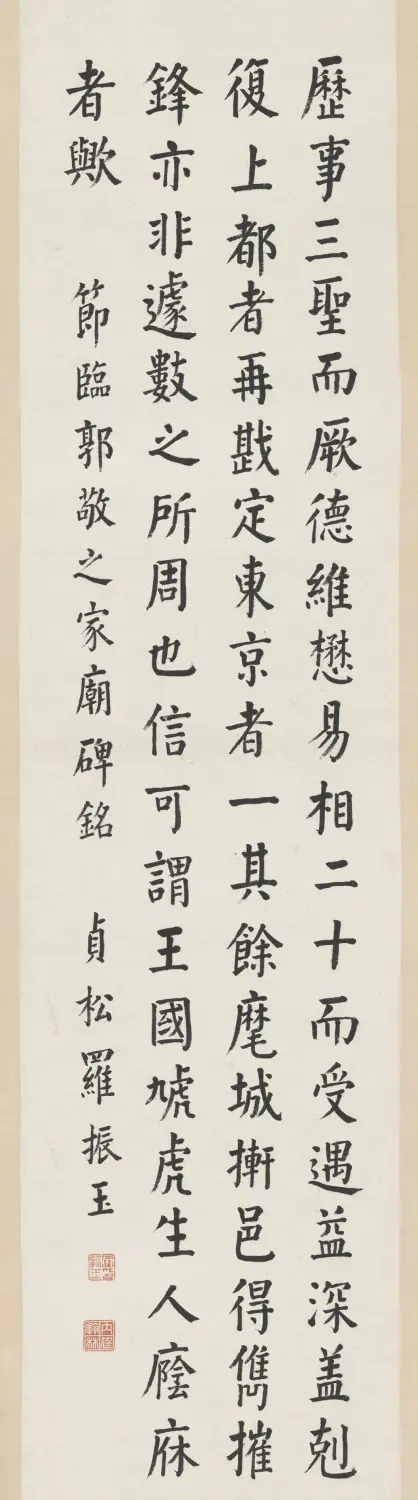 歷事三聖而厥德維懋易相二十而受遇益深蓋剋
復上都者再戡定東京者一其餘麾城摲邑得儁摧
鋒亦非遽數之所周也信可謂王國虓虎生人廕庥
者歟
節臨郭敬之家廟碑銘 貞松羅振玉